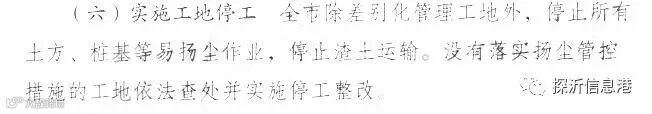 (六)实施工地停工 全市除差别化管理工地外,停止所有
土方、桩基等易扬尘作业,停止渣土运输。没有落实扬尘管控
措施的工地依法查处并实施停工整改。
探沂信息港